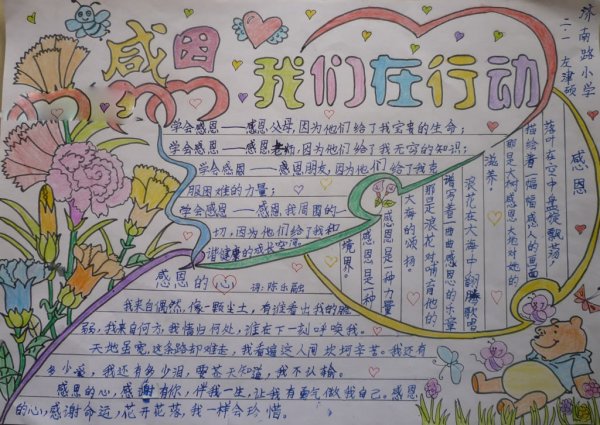 感恩
我们在行动
济南路小学
二·一 左津硕
学会感恩——感恩父母,因为他们给了我宝贵的生命;
学会感恩——感恩老师,因为他们给了我无穷的知识;
学会感恩——感恩朋友,因为他们给了我克
服困难的力量;
学会感恩——感恩我周围的一
切,因为他们给了我和
谐健康的成长空间
感恩
落叶在空中盘旋飘荡,
描绘着一幅幅感人的画面
那是大树感恩大地对她的
滋养。
浪花在大海中翻腾歌唱
谱写着一曲曲感恩的乐章
那是浪花对哺育他的
大海的颂扬。
感恩是一种力量
感恩是一种
境界。
感恩的心
诗:陈乐融
我来自偶然,像一颗尘土,有谁看出我的脆
弱,我来自何方,我情归何处,谁在下一刻呼唤我。
天地虽宽,这条路却难走,我看遍这人间坎坷辛苦。我还有
多少爱,我还有多少泪,要苍天知道,我不认输。
感恩的心,感谢有你,伴我一生,让我有勇气做我自己。感恩
的心,感谢命运,花开花落,我一样会珍惜。